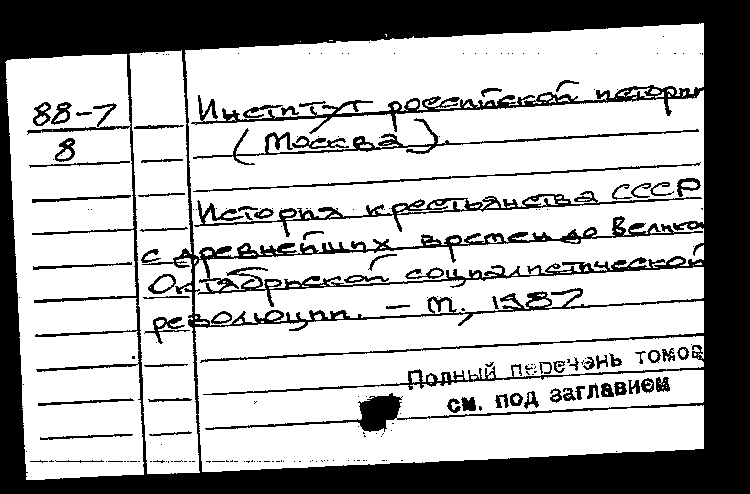 88-7
8
Институт российской истории
(Москва).
История крестьянства СССР
с древнейших времен до Велико
Октябрьской социалистической
революции. – М., 1987.
Полный перечень томов
см. под заглавием